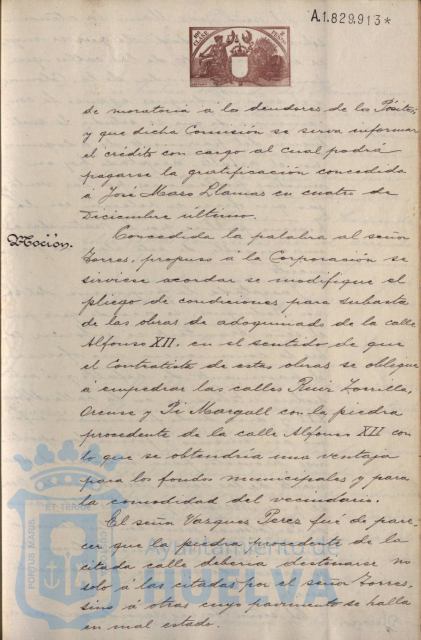 A.1.829.913*
de moratoria á los deudores de los Pósitos,
y que dicha Comisión se sirva informar
el crédito con cargo al cual podrá
pagarse la gratificación concedida
á José Maso Llamas en cuatro de
Diciembre último.
Moción.
Concedida la palabra al señor
Torres, propuso á la Corporación se
sirviese acordar se modifique el
pliego de condiciones para subasta
de las obras de adoquinado de la calle
Alfonso XII, en el sentido de que
el Contratista de estas obras se obligue
á empedrar las calles Ruiz Zorrilla,
Orense y Pi Margall con la piedra
procedente de la calle Alfonso XII con
lo que se obtendría una ventaja
para los fondos municipales y para
la comodidad del vecindario.
El señor Vazquez Perez fué de pare-
cer que la piedra procedente de la
citada calle debería destinarse no
solo á las citadas por el señor Torres,
sino á otras cuyo pavimento se halla
en mal estado.
PORTUS MARIS
ET TERRAE
Ayuntamiento de
HUELVA